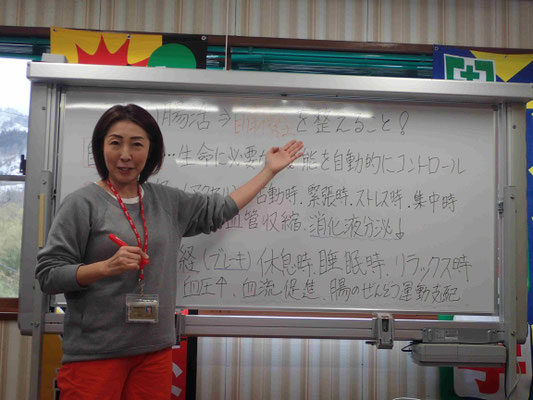 腸活⇒自律神経を整えること!
自 …生命に必要な 能を自動的にコントロール
(アクセル)活動時.緊張時.ストレス時.集中時
血管収縮.消化液分泌↓
経(ブレーキ)休息時.睡眠時.リラックス時
血圧↑.血流促進.腸のぜんどう運動支配